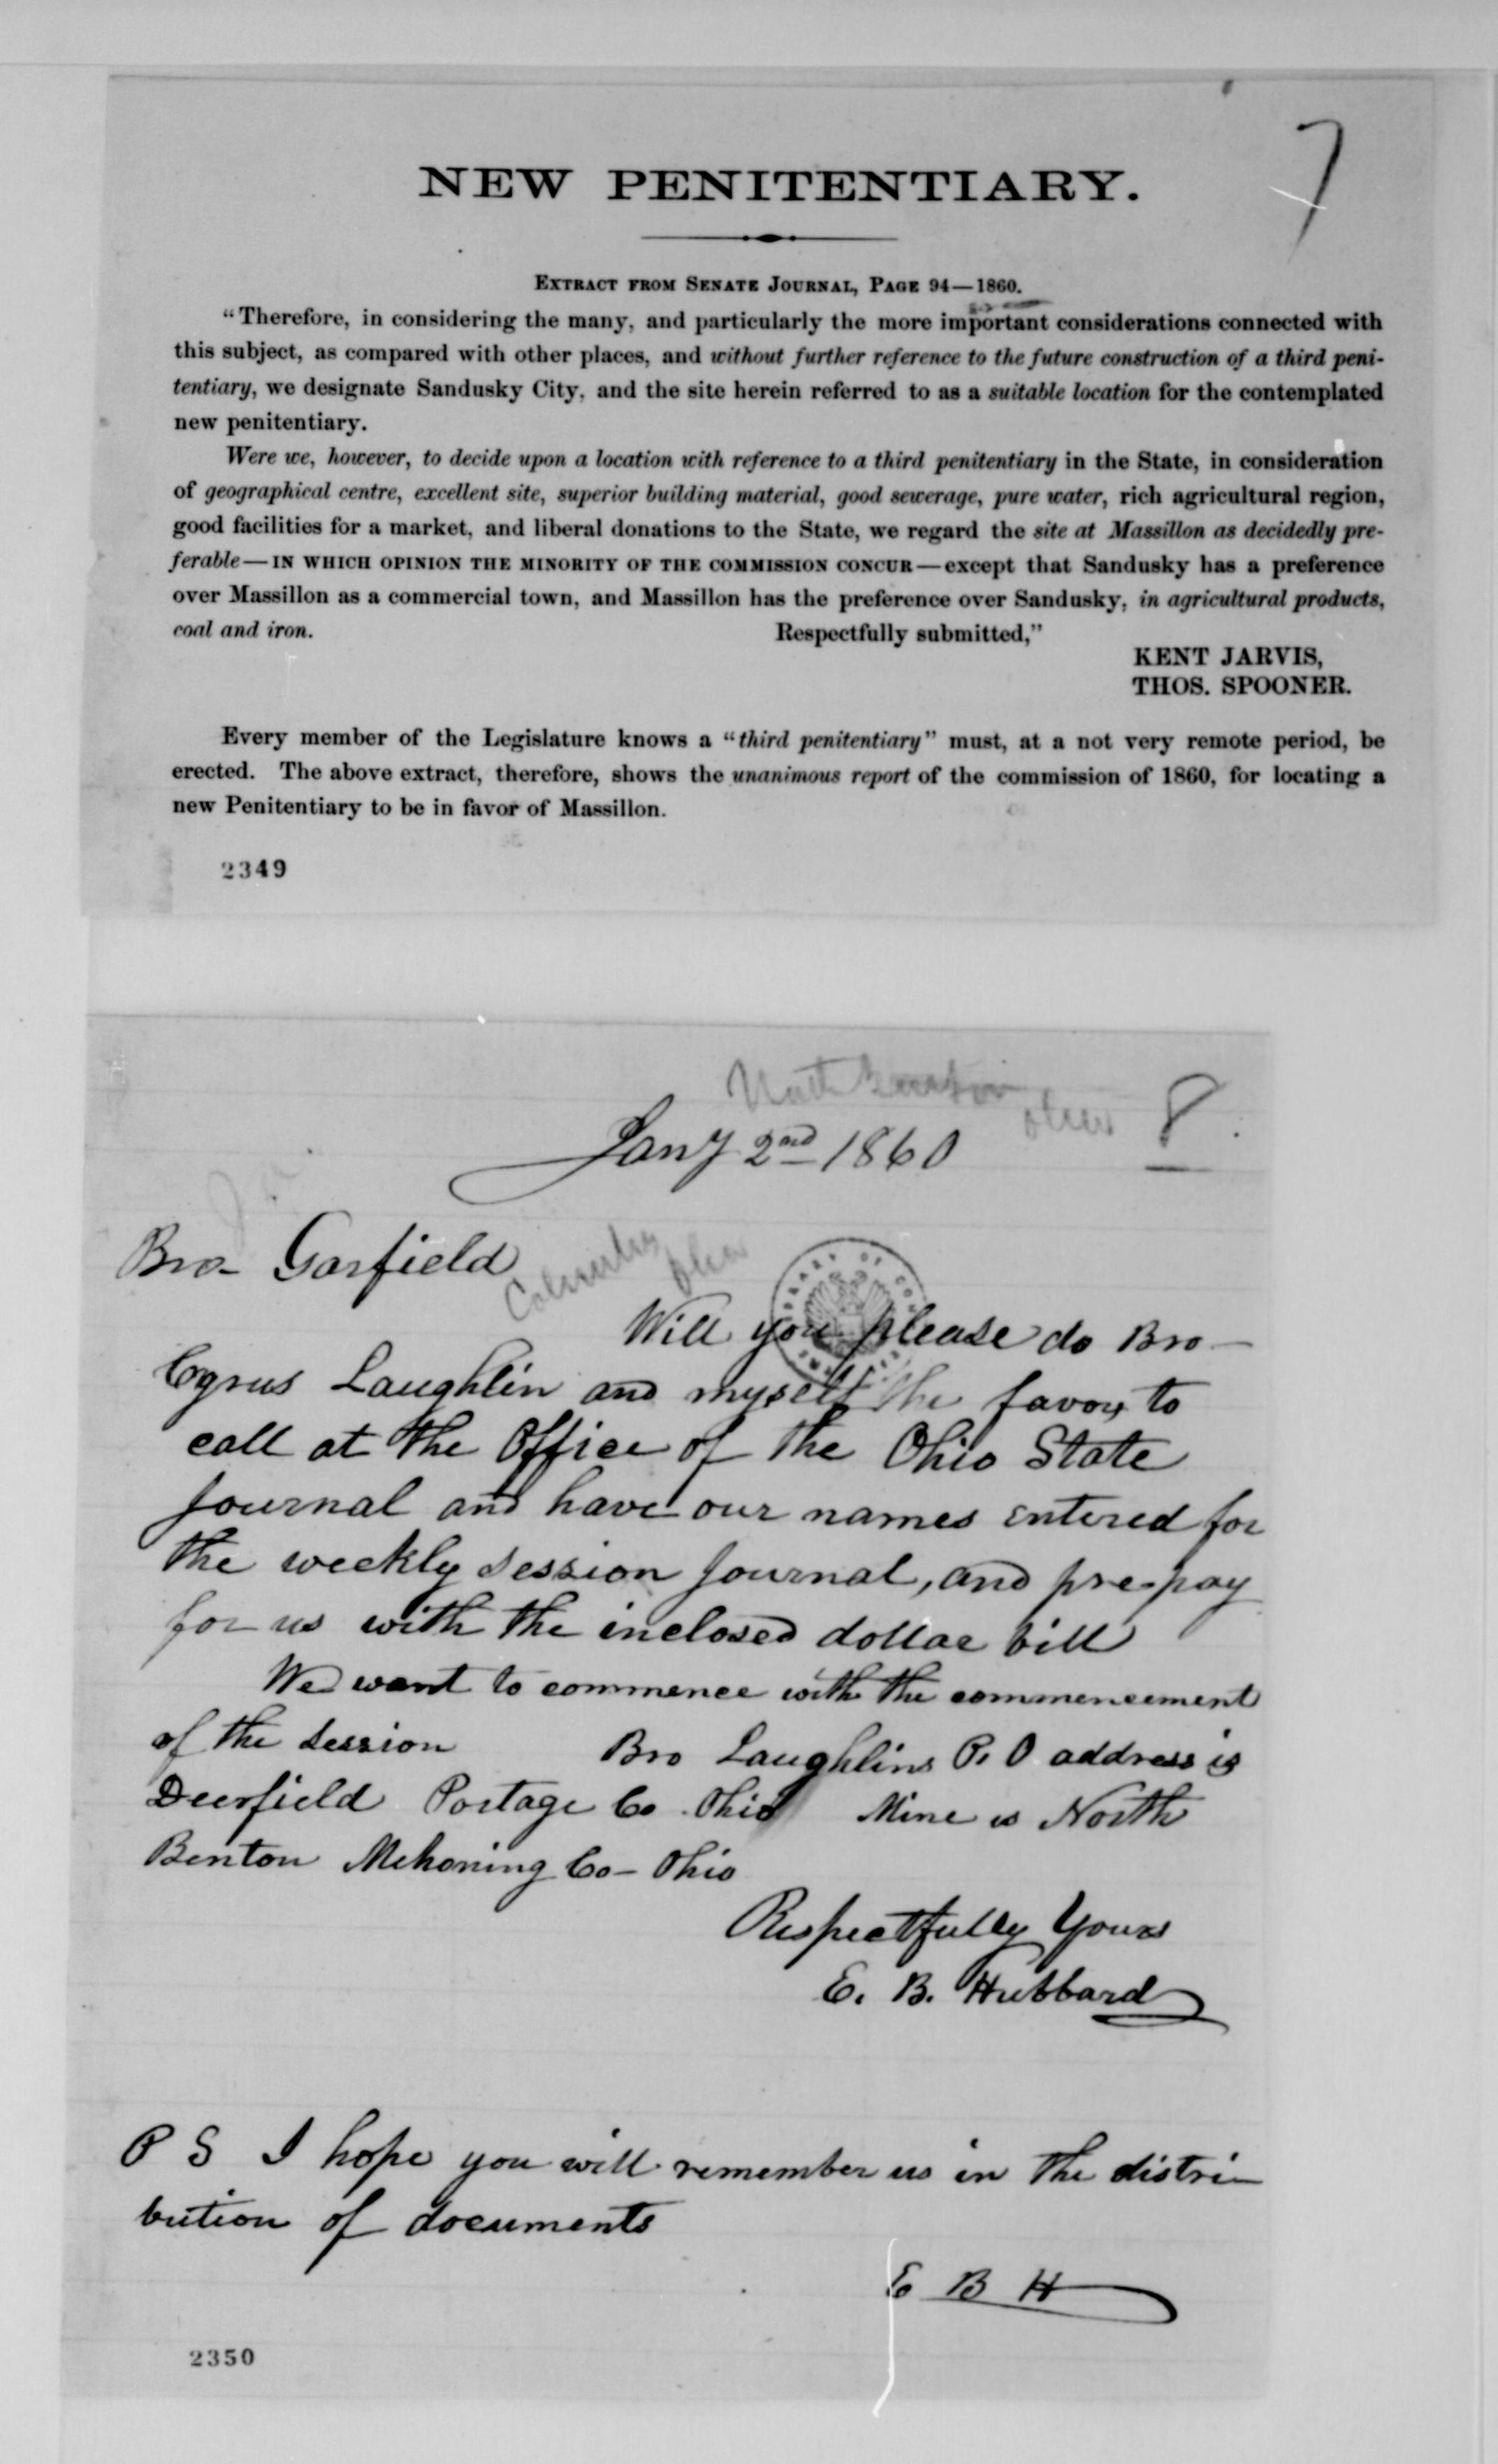 7
NEW PENITENTIARY.
EXTRACT FROM SENATE JOURNAL, PAGE 94—1860.
"Therefore, in considering the many, and particularly the more important considerations connected with
this subject, as compared with other places, and without further reference to the future construction of a third peni-
tentiary, we designate Sandusky City, and the site herein referred to as a suitable location for the contemplated
new penitentiary.
Were we, however, to decide upon a location with reference to a third penitentiary in the State, in consideration
of geographical centre, excellent site, superior building material, good sewerage, pure water, rich agricultural region,
good facilities for a market, and liberal donations to the State, we regard the site at Massillon as decidedly pre-
ferable—IN WHICH OPINION THE MINORITY OF THE COMMISSION CONCUR—except that Sandusky has a preference
over Massillon as a commercial town, and Massillon has the preference over Sandusky, in agricultural products,
coal and iron. Respectfully submitted,"
KENT JARVIS,
THOS. SPOONER.
Every member of the Legislature knows a "third penitentiary" must, at a not very remote period, be
erected. The above extract, therefore, shows the unanimous report of the commission of 1860, for locating a
new Penitentiary to be in favor of Massillon.
2349
North Benton
Ohio 8
Jany 2nd 1860
Bro- Garfield
Columbus
Ohio
Will you please do Bro-
Cyrus Laughlin and myself the favor to
call at the Office of the Ohio State
Journal and have our names entered for
the weekly session Journal, and pre-pay
for us with the inclosed dollar bill
We want to commence with the commencement
of the session Bro Laughlins P. O address is
Deerfield Portage Co Ohio Mine is North
Benton Mehoning Co- Ohio
Respectfully Yours
E. B. Hubbard
P S I hope you will remember us in the distri-
bution of documents
E B H
2350